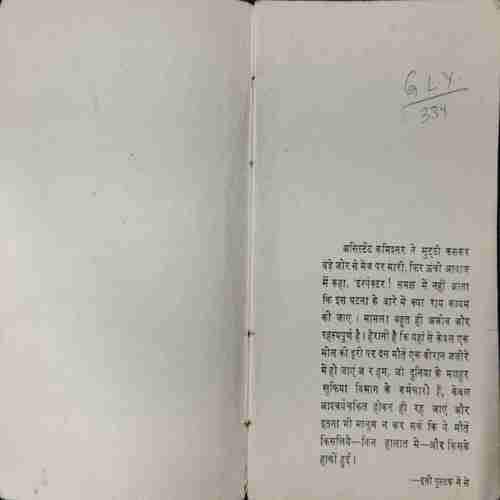 G L.Y.
334
असिस्टेंट कमिश्नर ने मुट्ठी कसकर
बड़े जोर से मेज पर मारी, फिर ऊंची आवाज
में कहा, 'इंस्पेक्टर! समझ में नहीं आता
कि इस घटना के बारे में क्या राय कायम
की जाए। मामला बहुत ही अजीब और
रहस्यपूर्ण है। हैरानी है कि यहां से केवल एक
मील की दूरी पर दस मौतें एक वीरान जजीरे
में हो जाएं और हम, जो दुनिया के मशहूर
खुफिया विभाग के कर्मचारी हैं, केवल
आश्चर्यचकित होकर ही रह जाएं और
इतना भी मालूम न कर सकें कि ये मौतें
किसलिये—किन हालात में—और किसके
हाथों हुईं।
—इसी पुस्तक में से